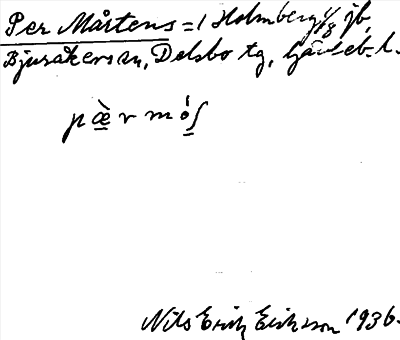 Per Mårtens = 1 Holmberg 1/8 jb,
Bjuråkers sn, Delsbo tg, Gävleb. l.
pæ̀r mó̱ʃ
Nils Erik Eriksson 1936.